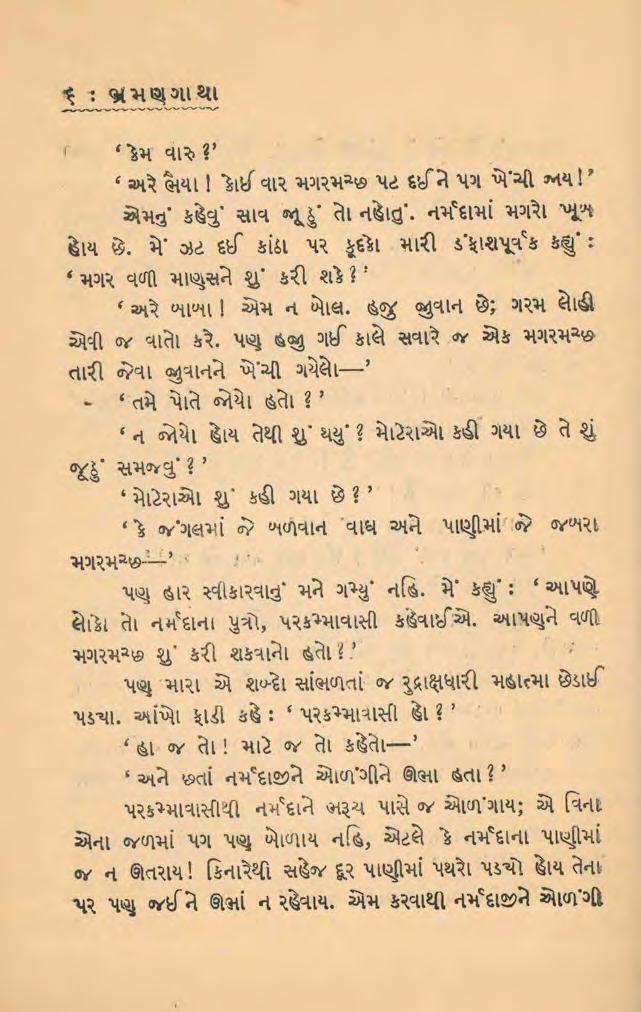 ૬ : ભ્રમણગાથા
‘ કેમ વારુ ?’
‘ અરે ભૈયા ! કોઈ વાર મગરમચ્છ પટ દઈ ને પગ ખેંચી જાય !’
એમનું કહેવું સાવ જૂઠું તો નહોતું. નર્મદામાં મગરો ખૂબ
હોય છે. મેં ઝટ દઈ કાંઠા પર કૂદકો મારી ડંફાશપૂર્વક કહ્યું :
‘ મગર વળી માણસને શું કરી શકે ? ’
‘ અરે બાબા ! એમ ન બોલ. હજુ જુવાન છે; ગરમ લોહી
એવી જ વાતો કરે. પણ હજી ગઈ કાલે સવારે જ એક મગરમચ્છ
તારી જેવા જુવાનને ખેંચી ગયેલો—’
‘ તમે પોતે જોયો હતો ? ’
‘ ન જોયો હોય તેથી શું થયું ? મોટેરાઓ કહી ગયા છે તે શું
જૂઠું સમજવું ? ’
‘ મોટેરાઓ શું કહી ગયા છે ? ’
‘ કે જંગલમાં જે બળવાન વાઘ અને પાણીમાં જે જબરા
મગરમચ્છ—’
પણ હાર સ્વીકારવાનું મને ગમ્યું નહિ. મેં કહ્યું : ‘ આપણે
લોકો તો નર્મદાના પુત્રો, પરકમ્માવાસી કહેવાઈએ. આપણને વળી
મગરમચ્છ શું કરી શકવાનો હતો ? ’
પણ મારા એ શબ્દો સાંભળતાં જ રુદ્રાક્ષધારી મહાત્મા છેડાઈ
પડ્યા. આંખો ફાડી કહે : ‘ પરકમ્માવાસી હો ? ’
‘ હા જ તો ! માટે જ તો કહેતો—’
‘ અને છતાં નર્મદાજીને ઓળંગીને ઊભા હતા ? ’
પરકમ્માવાસીથી નર્મદાને ભરૂચ પાસે જ ઓળંગાય; એ વિના
એના જળમાં પગ પણ બોળાય નહિ, એટલે કે નર્મદાના પાણીમાં
જ ન ઊતરાય ! કિનારેથી સહેજ દૂર પાણીમાં પથરો પડ્યો હોય તેના
પર પણ જઈ ને ઊભાં ન રહેવાય. એમ કરવાથી નર્મદાજીને ઓળંગી